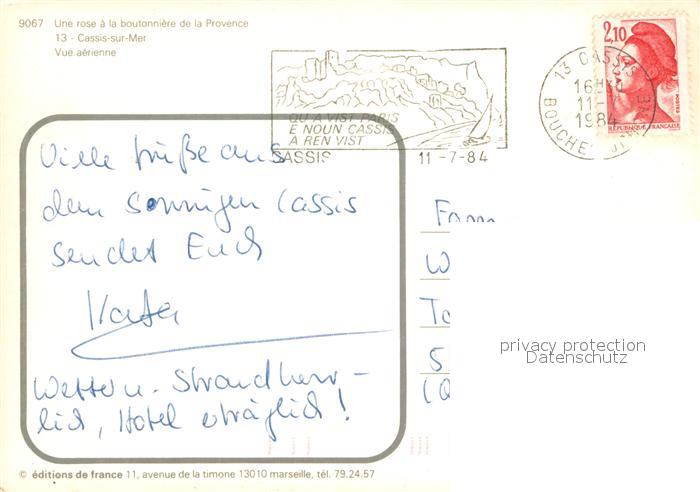 9067 Une rose à la boutonnière de la Provence
13 - Cassis-sur-Mer
Vue aérienne
QU A VIST PARIS
E NOUN CASSIS
A REN VIST
CASSIS 11-7-84
13 CASSIS
16H
11-
1984
BOUCHES DU RHONE
2,10
POSTES
REPUBLIQUE FRANÇAISE
Viele Grüße aus
dem sonnigen Cassis
sendet Euch
Wetter u. Strand herr-
lich, Hotel erträglich!
Fam
W
To
5
privacy protection
Datenschutz
© éditions de france 11, avenue de la timone 13010 marseille, tél. 79.24.57